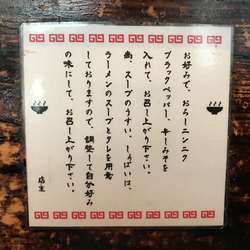 お好みで、おろしニンニク
ブラックペッパー、辛しみそを
入れて、お召し上がり下さい。
尚、スープのうすい、しょっぱいは、
ラーメンのスープとタレを用意
しておりますので、調整して自分好み
の味にして、お召し上がり下さい。
店主